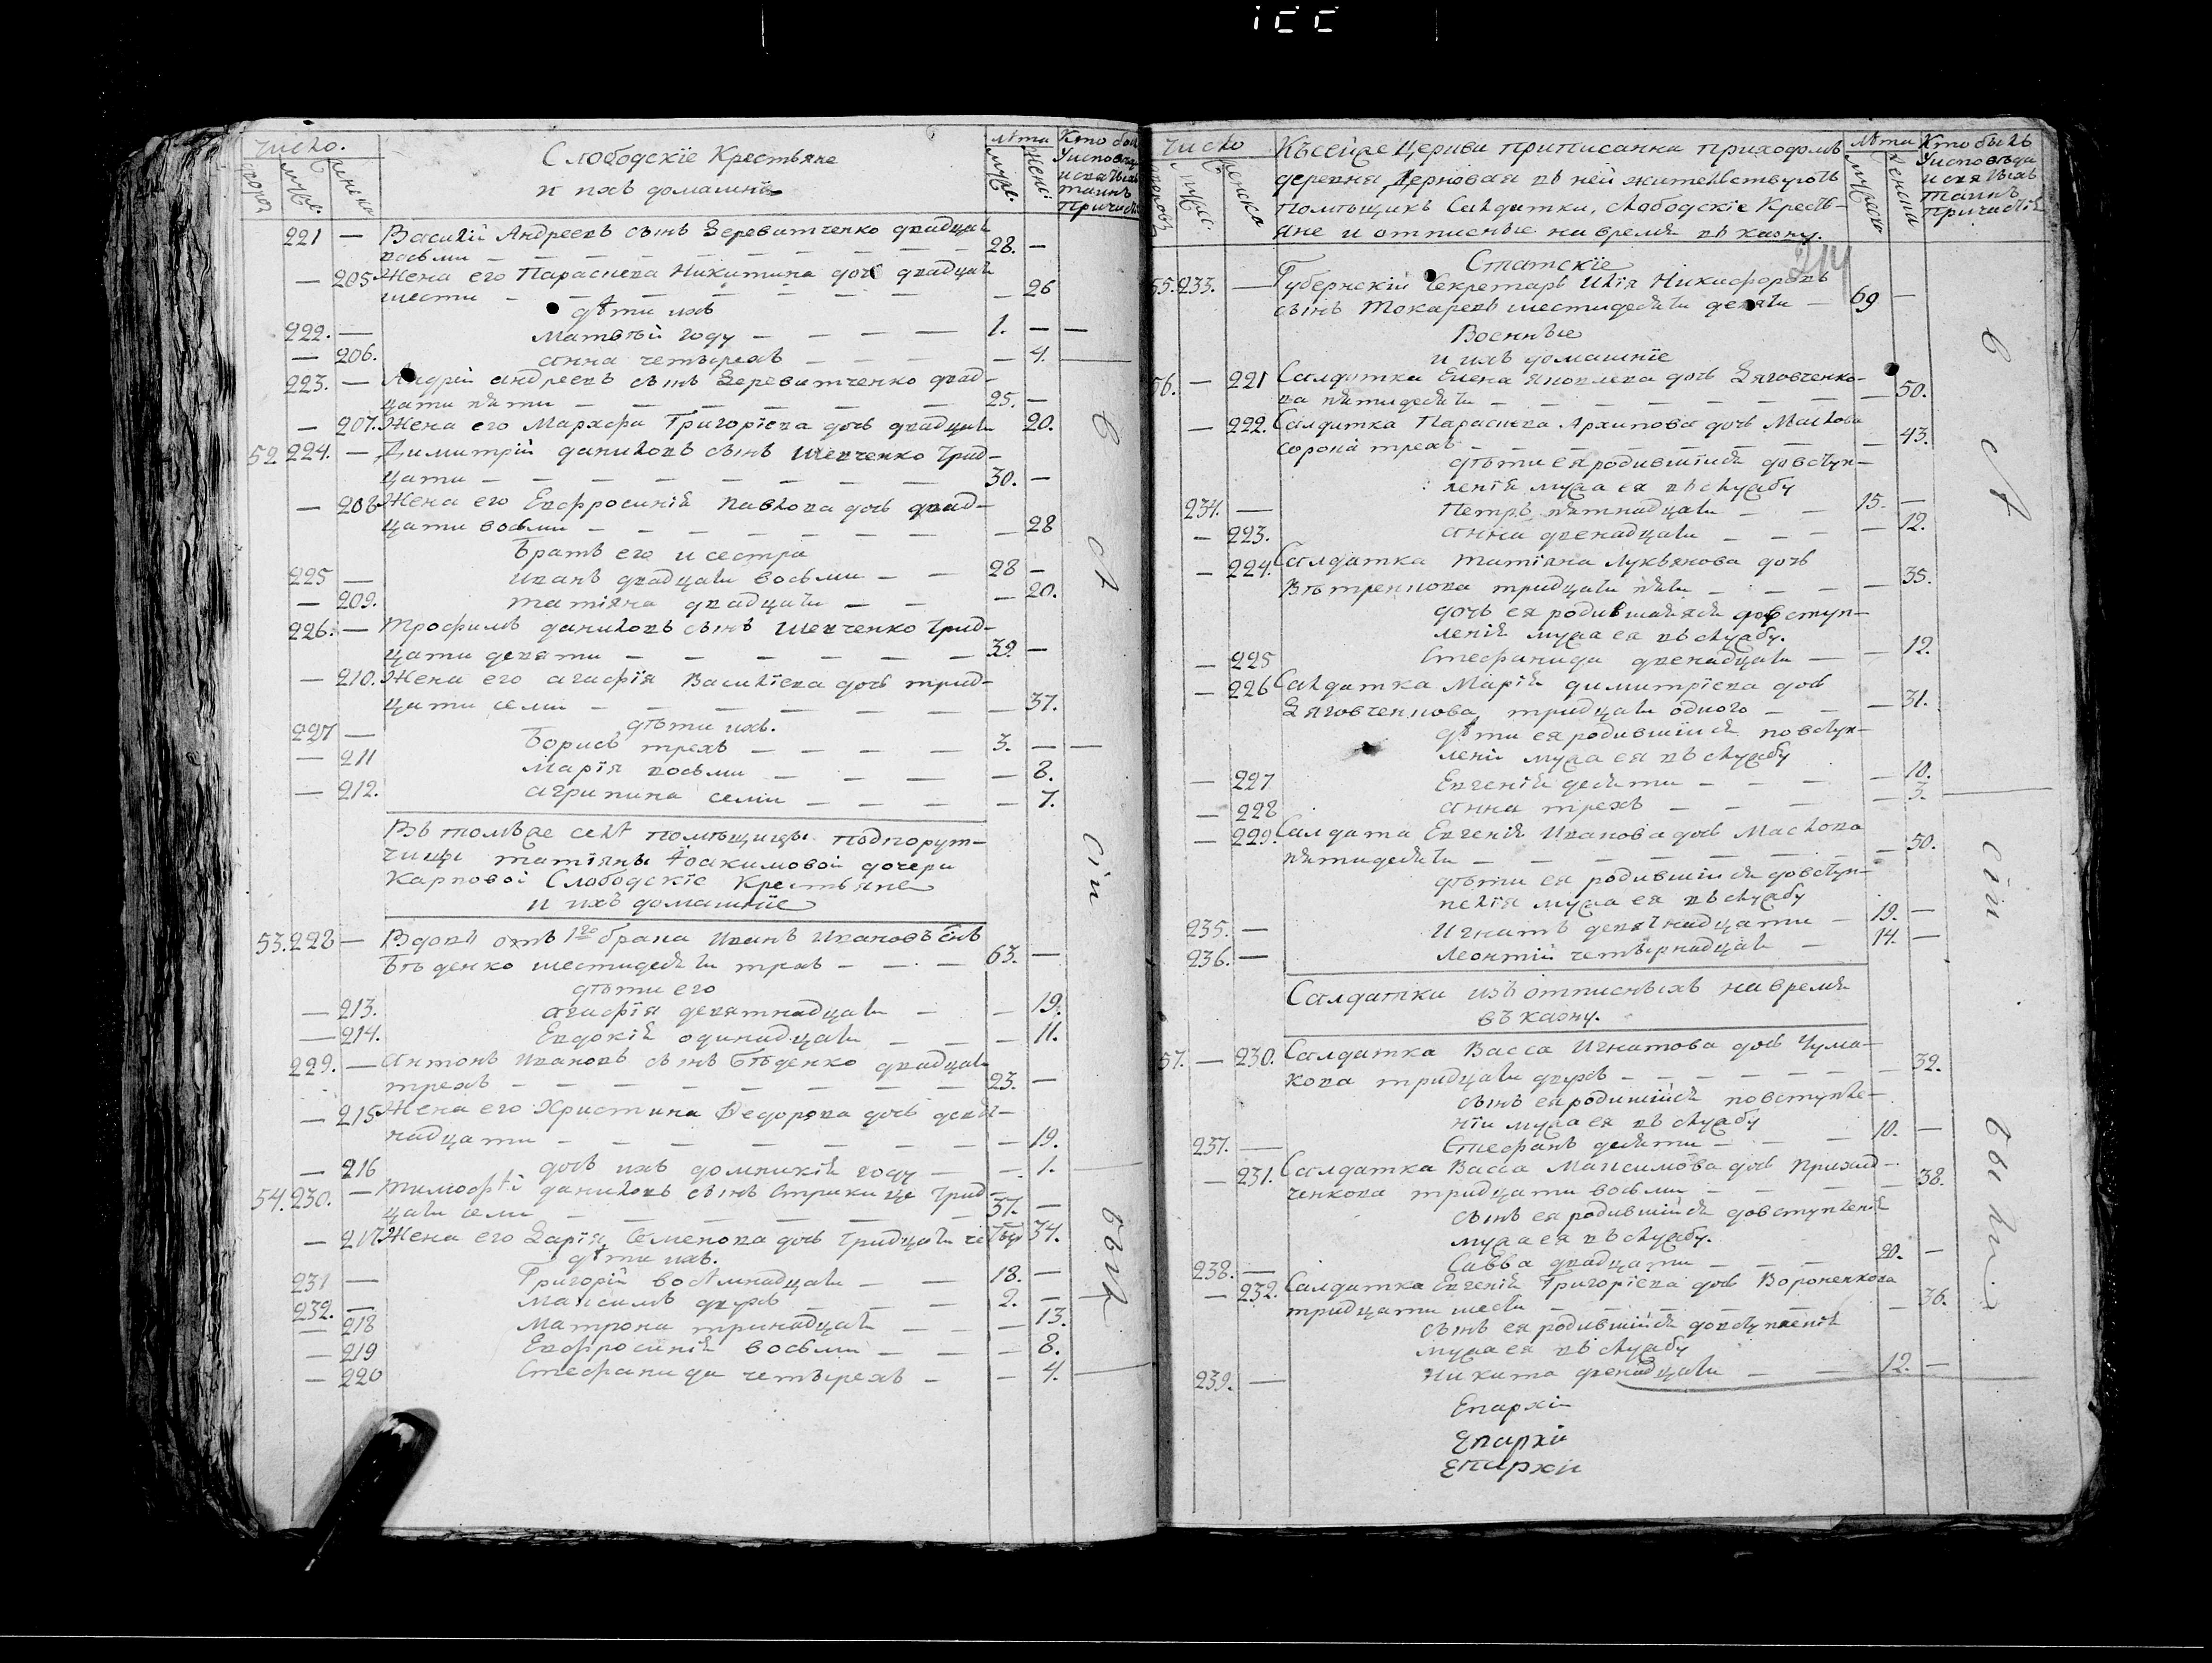 Число.
Слободскіе Крестьяне
и ихъ домашніе
лѣта
221 — Василій Андреевъ сынъ Деревитченко двадцать
восьми — 28. —
— 205 Жена его Параскева Никитина дочь двадцать
шести — 26
дѣти ихъ
222. — Матвѣй году — 1. —
— 206. Анна четырехъ — 4.
223. — Андрій Андреевъ сынъ Деревитченко двад-
цати пяти — 25. —
— 207. Жена его Марѳа Григоріева дочь двадцати 20.
52 224. — Димитрій Даниловъ сынъ Шевченко трид-
цати — 30. —
— 208 Жена его Евфросинія Павлова дочь двад-
цати восьми — 28
Братъ его и сестра
225 — Иванъ двадцати восьми — 28 —
— 209. Татіяна двадцати — 20.
226. — Трофимъ Даниловъ сынъ Шевченко трид-
цати девяти — 39. —
— 210. Жена его Агафія Василіева дочь трид-
цати семи — 37.
дѣти ихъ.
227 — Борисъ трехъ — 3. —
— 211 Марія восьми — 8.
— 212. Агрипина семи — 7.
Въ томъ же селѣ помѣщицы подпорут-
чицы Татіяны Іоакимовой дочери
Карповой Слободскіе Крестьяне
и ихъ домашніе
53. 228 — Вдовъ отъ 1го брака Иванъ Ивановъ снъ
Бѣденко шестидесяти трехъ — 63. —
дѣти его
— 213. Агафія девятнадцати — 19.
— 214. Евдокія одинадцати — 11.
229. — Антонъ Ивановъ сынъ Бѣденко двадцати
трехъ — 23. —
— 215 Жена его Христина Ѳедорова дочь девят-
надцати — 19.
— 216 дочь ихъ Домникія году — 1.
54. 230. — Тимоѳѣй Даниловъ сынъ трид-
цати семи — 37. —
— 217 Жена его Дарія Семенова дочь тридцати четыр 34.
дѣти ихъ.
231 — Григорій восемнадцати — 18. —
232. — Максимъ двухъ — 2. —
— 218 Матрона тринадцати — 13.
— 219 Евфросинія восьми — 8.
— 220 Стефанида четырехъ — 4.
всѣ
сіи
были
Число
Къ сей же Церкви приписанна приходомъ
деревня въ ней жительствуютъ
помѣщикъ Салдатки, Слободскіе Кресть-
яне и отписные на время въ казну.
лѣта
Кто былъ
У исповѣди
и святыхъ
таинъ
причастія
214
Статскіе
55. 233. — Губернскій Секретарь Илія Никифоровъ
сынъ Токаревъ шестидесяти девяти — 69 —
Военные
и ихъ домашніе
56. — 221 Салдатка Елена Яковлева дочь Дяговченко-
ва пятидесяти — 50.
— 222. Салдатка Параскева Архипова дочь Маслова
сорока трехъ — 43.
дѣти ея родившіися до вступ-
ленія мужа ея въ службу
234. — Петръ пятнадцати — 15. —
— 223. Анна двенадцати — 12.
— 224. Салдатка Татіяна Лукьянова дочь
Вѣтренкова тридцати пяти — 35.
дочь ея родившаяся до вступ-
ленія мужа ея въ службу.
— 225 Стефанида двенадцати — 12.
— 226 Салдатка Марія Димитріева дочь
Дяговченкова тридцати одного — 31.
дѣти ея родившіися по вступ-
леніи мужа ея въ службу
— 227 Евгенія десяти — 10.
— 228 Анна трехъ — 3.
— 229. Салдатка Евгенія Иванова дочь Маслова
пятидесяти — 50.
дѣти ея родившіися до вступ-
ленія мужа ея въ службу
235. — Игнатъ девятнадцати — 19. —
236. — Леонтій четырнадцати — 14. —
Салдатки изъ отписныхъ на время
въ казну.
57. — 230. Салдатка Васса Игнатова дочь Чума-
кова тридцати двухъ — 32.
сынъ ея родившійся по вступле-
ніи мужа ея въ службу
237. — Стефанъ десяти — 10. —
— 231. Салдатка Васса Максимова дочь Приход-
ченкова тридцати восьми — 38.
сынъ ея родившійся до вступленія
мужа ея въ службу.
238. — Савва двадцати — 20. —
— 232. Салдатка Евгенія Григоріева дочь Вороненкова
тридцати шести — 36.
сынъ ея родившійся до вступленія
мужа ея въ службу
239. — Никита двенадцати — 12. —
Епархіи
Епархіи
Епархіи
всѣ
сіи
были